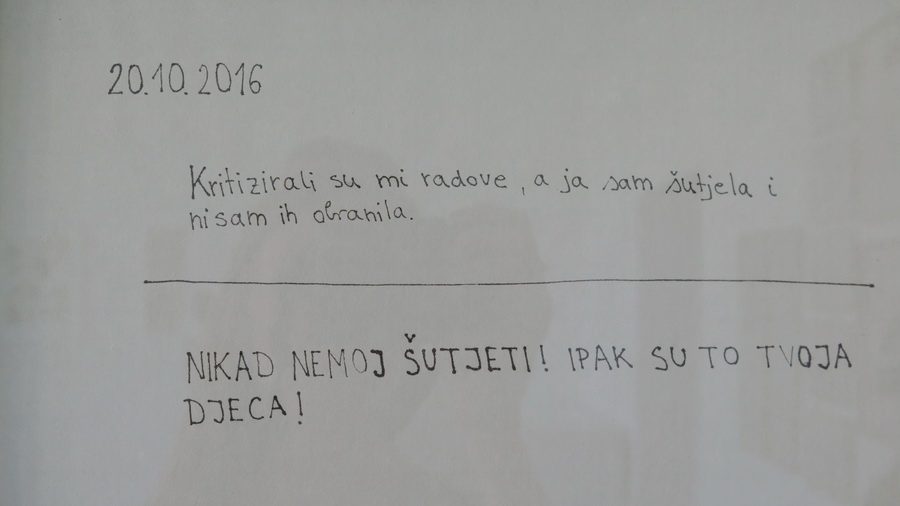 20.10.2016
Kritizirali su mi radove, a ja sam šutjela i
nisam ih obranila.
NIKAD NEMOJ ŠUTJETI! IPAK SU TO TVOJA
DJECA!